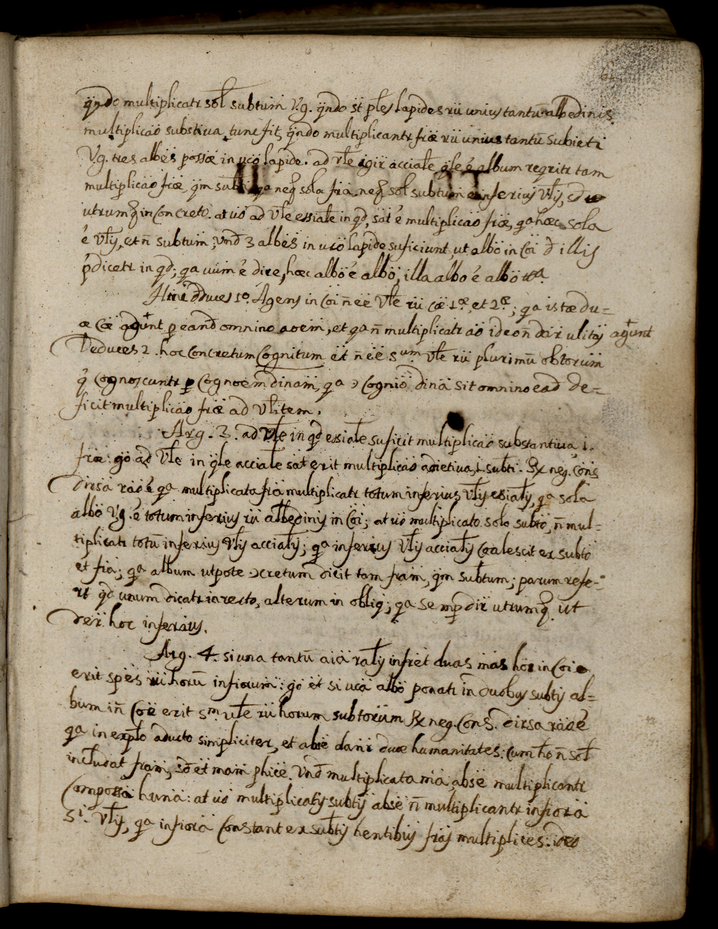 qñdo multiplicatr sol subtum Vg. qñdo st ples lapides rū unius tantū albedinis,
multiplicāo substiva, tunc fit, qñdo multiplicantr frãe rū unius tantū subiecti
Vg. tres albēs possæ in uco lapide. ad Vle igir accīale qle é album regritr tam
multiplicāo frãe, qm neq sola fra, neq sol subtum inferius Vlis,
utrumq in concreto. at uō ad Vle essīale in qd, sat é multiplicāo frãe, qa hæc sola
é Vlis, et ñ subtum; Vndē 3 albēs in uco lapide suficiunt, ut albō in Coī d illis
pdicetr in qd; qa uūm é dire, hæc albō é albō, illa albō é albō
Hinc dduces 1º. Agens in Coī ñ eē Vle rū cæ 1æ et 2æ; qa istæ du=
æ cæ agunt p eand omnino aōem, et qa ñ multiplicatr aō ideo ñ datr ulitas agunt
Deduces 2. hoc concretum cognitum ēt ñ eē sum Vle rū plurimū obtorum
q cognoscuntr p cognōem dinam, qa ɔ cognio dina sit omnino ead de=
ficit multiplicāo frãe ad Vlitem.
Arg. 2. ad Vle in qd essīale suficit multiplicāo substantiva, l.
frãe: go ad Vle in qle accīale sat erit multiplicāo adietiva, l. subti. Rx neg. cons
dirsa raō é qa multiplicata fra multiplicatr totum inferius Vlis essīalis, qa sola
albō Vg. é totum inferius rū albedinis in Coī; at uō multiplicato solo subto, ñ mul=
tiplicatr totū inferius Vlis accīalis; qa inferius Vlis accīalis coalescit ex subto
et fra; qa album utpote ɔcretum dicit tam fram, qm subtum; parum refe=
rt qd unum dicatr in recto, alterum in obliq; qa semp dir utrumq. ut
detr hoc inferius.
Arg. 4. si una tantū aīa ralis infret duas mās hoī in Coī
erit spēs rū horū infiorum: go et si uca albō ponatr in duobus subtis al=
bum in Coē erit sm Vle rū horum subtorum Rx neg. Cons. dirsa raō é
qa in explo aducto simpliciter, et absē dantr duæ humanitates: cum ho ñ sol
includat fram, sd et mam phicē. Vndē multiplicata mā absē multiplicantr
Composā huna: at uō multiplicatis subtis absē ñ multiplicantr infiora
Vlis, qa infiora constant ex subtis hentibus fras multiplices: